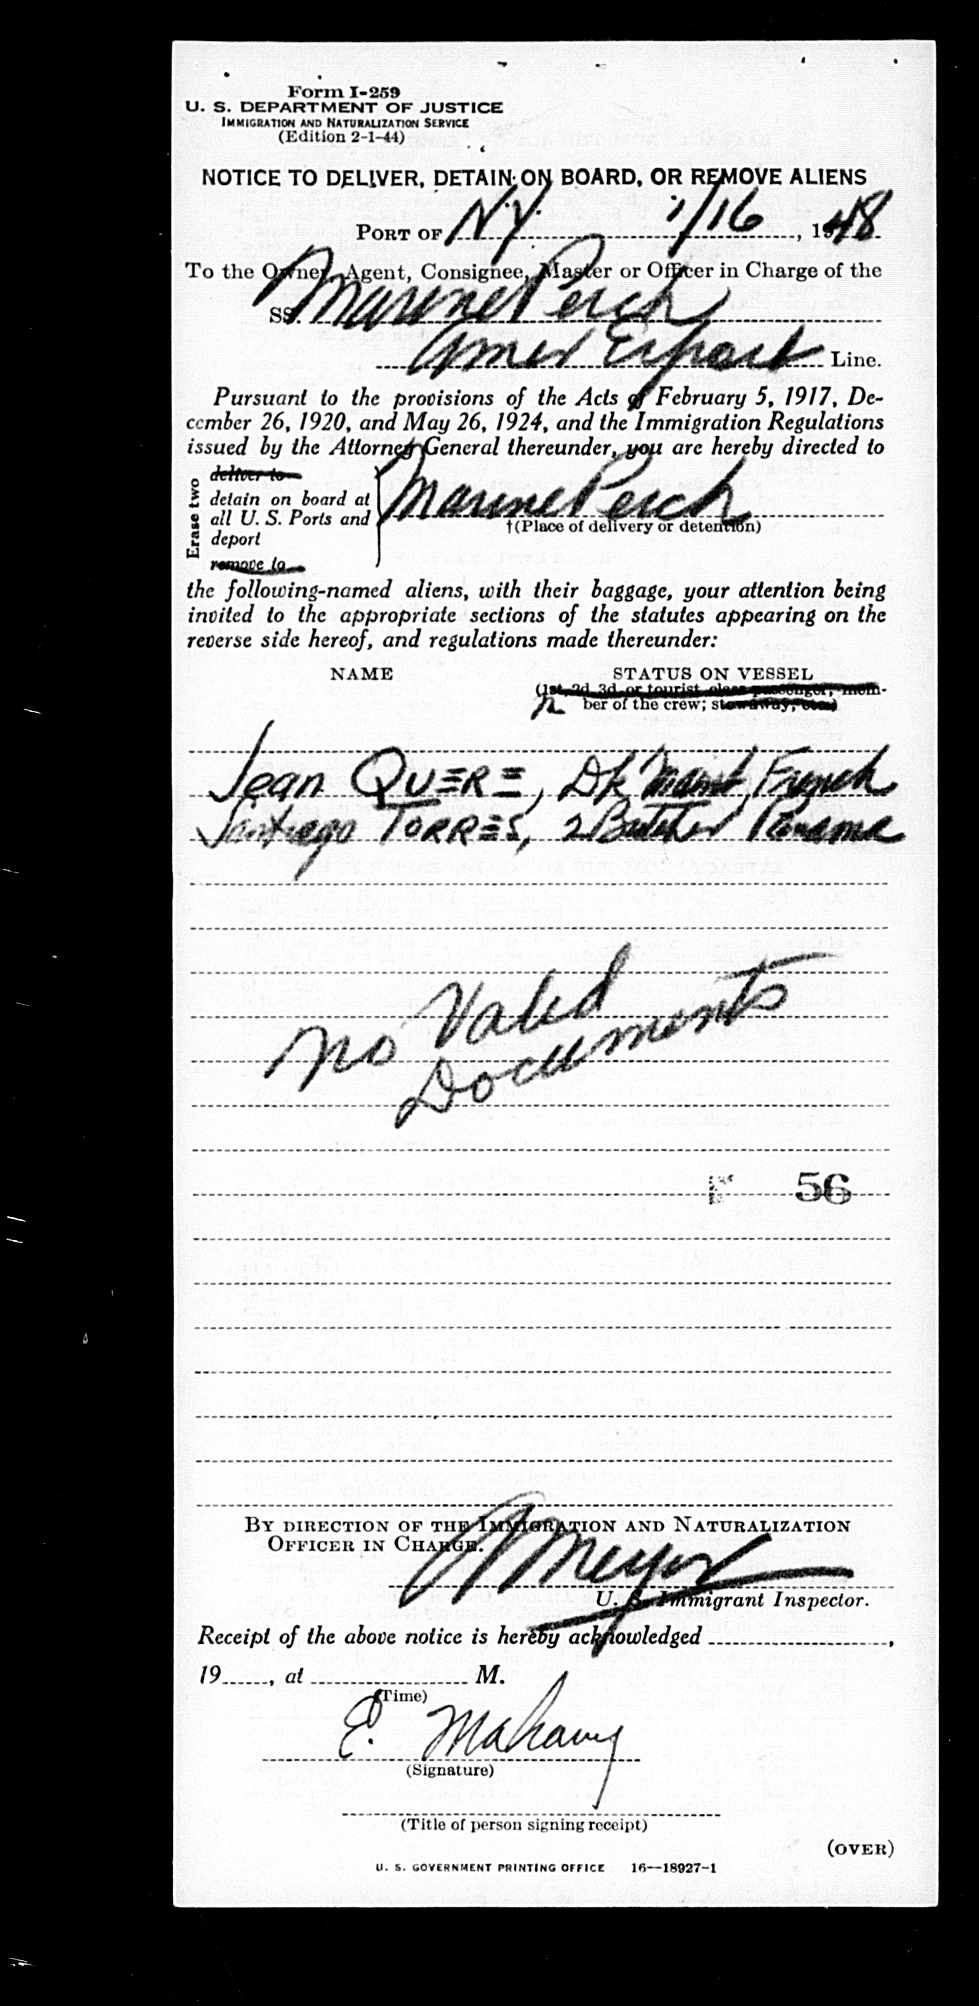 Form I-259
U. S. DEPARTMENT OF JUSTICE
IMMIGRATION AND NATURALIZATION SERVICE
(Edition 2-1-44)
NOTICE TO DELIVER, DETAIN ON BOARD, OR REMOVE ALIENS
PORT OF N.Y. 1/16, 1948
To the Owner, Agent, Consignee, Master or Officer in Charge of the
SS. Marine Perch
Amer Export Line.
Pursuant to the provisions of the Acts of February 5, 1917, De-
cember 26, 1920, and May 26, 1924, and the Immigration Regulations
issued by the Attorney General thereunder, you are hereby directed to
Erase two
deliver to
detain on board at
all U. S. Ports and
deport
remove to
Marine Perch
†(Place of delivery or detention)
the following-named aliens, with their baggage, your attention being
invited to the appropriate sections of the statutes appearing on the
reverse side hereof, and regulations made thereunder:
NAME STATUS ON VESSEL
(1st, 2d, 3d, or tourist class passenger, mem-
ber of the crew; stowaway, etc.)
Jean QUERE, Dk Maint French
Santiago TORRES, 2 Butcher Panama
No Valid
Documents
56
BY DIRECTION OF THE IMMIGRATION AND NATURALIZATION
OFFICER IN CHARGE.
Meyer
U. S. Immigrant Inspector.
Receipt of the above notice is hereby acknowledged ,
19 , at M.
(Time)
E. Mahany
(Signature)
(Title of person signing receipt)
(OVER)
U. S. GOVERNMENT PRINTING OFFICE 16—18927-1